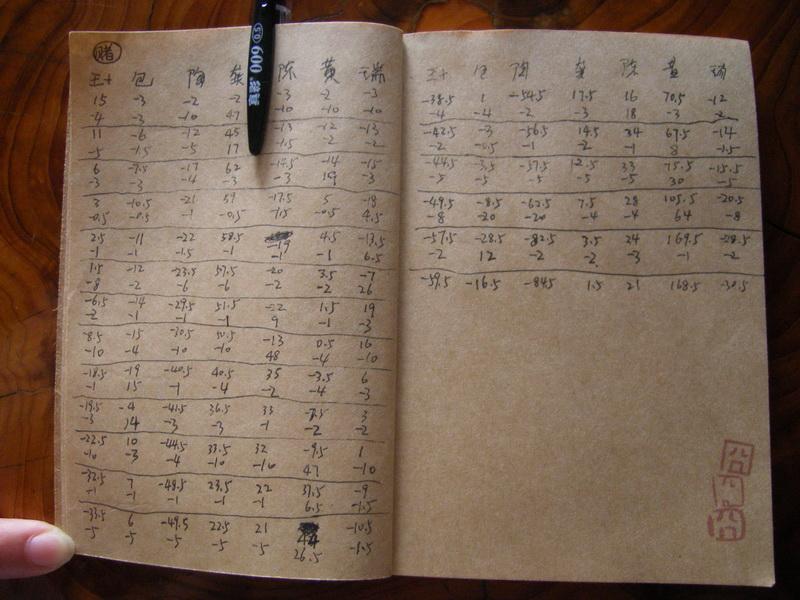 赌
王十 包 陶 龚 陈 黄 瑞
15 -3 -2 -2 -3 -2 -3
-4 -3 -10 47 -10 -10 -10
11 -6 -12 45 -13 -12 -13
-5 -1.5 -5 17 -1.5 -2 -2
6 -7.5 -17 62 -14.5 -14 -15
-3 -3 -4 -3 -3 19 -3
3 -10.5 -21 59 -17.5 5 -18
-0.5 -0.5 -1 -0.5 -1.5 -0.5 4.5
2.5 -11 -22 58.5 -19 4.5 -13.5
-1 -1 -1.5 -1 -1 -1 6.5
1.5 -12 -23.5 57.5 -20 3.5 -7
-8 -2 -6 -6 -2 -2 26
-6.5 -14 -29.5 51.5 -22 1.5 19
-2 -1 -1 -1 9 -1 -3
-8.5 -15 -30.5 50.5 -13 0.5 16
-10 -4 -10 -10 48 -4 -10
-18.5 -19 -40.5 40.5 35 -3.5 6
-1 15 -1 -4 -2 -4 -3
-19.5 -4 -41.5 36.5 33 -7.5 3
-3 14 -3 -3 -1 -2 -2
-22.5 10 -44.5 33.5 32 -9.5 1
-10 -3 -4 -10 -10 47 -10
-32.5 7 -48.5 23.5 22 37.5 -9
-1 -1 -1 -1 -1 6.5 -1.5
-33.5 6 -49.5 22.5 21 44 -10.5
-5 -5 -5 -5 -5 26.5 -1.5
王十 包 陶 龚 陈 黄 瑞
-38.5 1 -54.5 17.5 16 70.5 -12
-4 -4 -2 -3 18 -3 -2
-42.5 -3 -56.5 14.5 34 67.5 -14
-2 -0.5 -1 -2 -1 8 -1.5
-44.5 -3.5 -57.5 12.5 33 75.5 -15.5
-5 -5 -5 -5 -5 30 -5
-49.5 -8.5 -62.5 7.5 28 105.5 -20.5
-8 -20 -20 -4 -4 64 -8
-57.5 -28.5 -82.5 3.5 24 169.5 -28.5
-2 12 -2 -2 -3 -1 -2
-59.5 -16.5 -84.5 1.5 21 168.5 -30.5
600